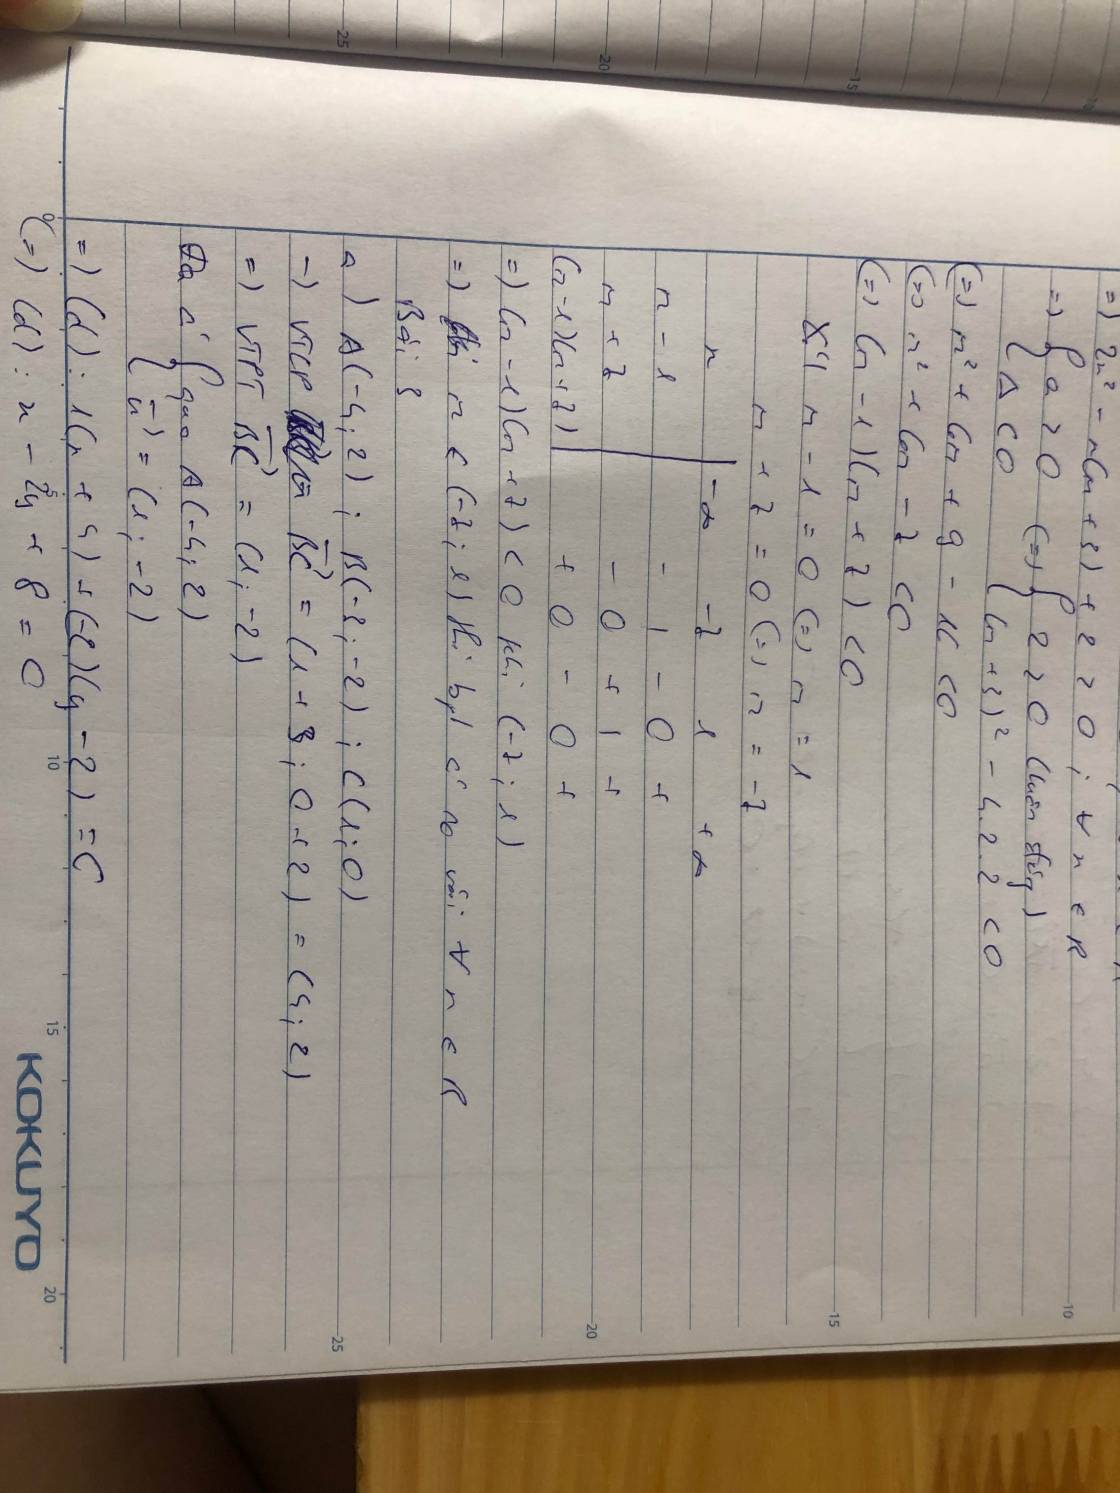 =) 2x² - x(m + 3) + 2 > 0 ; ∀ x ∈ R
=) { a > 0 (=) { 2 > 0 (luôn đúng)
{ Δ < 0 { (m + 3)² - 4.2.2 < 0
(=) m² + 6m + 9 - 16 < 0
(=) m² + 6m - 7 < 0
(=) (m - 1)(m + 7) < 0
Xét m - 1 = 0 (=) m = 1
m + 7 = 0 (=) m = -7
m -∞ -7 1 +∞
m - 1 - | - 0 +
m + 7 - 0 + | +
(m-1)(m+7) + 0 - 0 +
=) (m - 1)(m + 7) < 0 khi (-7 ; 1)
=) m ∈ (-7 ; 1) thì bpt có no với ∀ x ∈ R
Bài 8
a) A(-4; 2) ; B(-3; -2) ; C(1; 0)
-) VTCP BC = (1 + 3 ; 0 + 2) = (4 ; 2)
=) VTPT BC = (1; -2)
Ta có { qua A(-4; 2)
{ n = (1 ; -2)
=) (d) : 1(x + 4) + (-2)(y - 2) = 0
(=) (d) : x - 2y + 8 = 0
25
20
15
10
15
20
25
0
5
10
15
20
KOKUYO